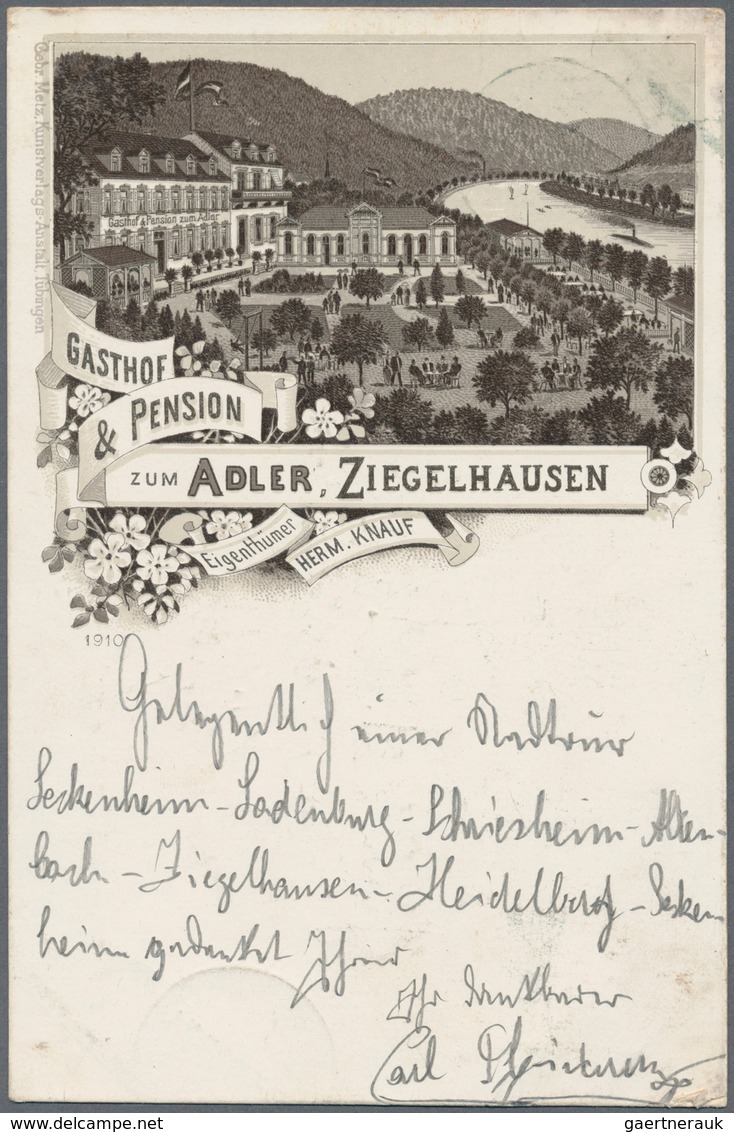 Gebr. Metz, Kunstverlags-Anstalt, Tübingen
Gasthof & Pension zum Adler
GASTHOF
& PENSION
ZUM ADLER, ZIEGELHAUSEN
Eigenthümer
HERM. KNAUF
1910
Gelegentlich einer Radtour
Seckenheim - Ladenburg - Schriesheim - Alten-
bach - Ziegelhausen - Heidelberg - Secken
heim gedenkt Ihrer
Ihr dankbarer
Carl
gaertnerauk